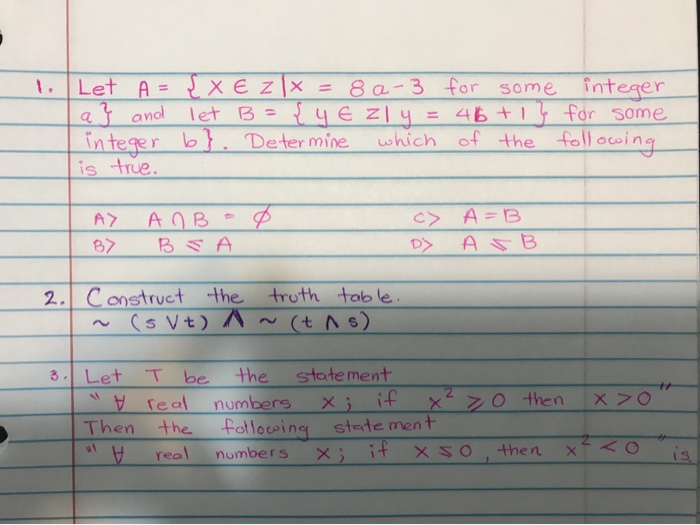 1. Let A = { x ∈ z | x = 8a-3 for some integer
a } and let B = { y ∈ z | y = 4b+1 } for some
integer b }. Determine which of the following
is true.
A> A ∩ B = ∅ C> A = B
B> B ⊆ A D> A ⊆ B
2. Construct the truth table.
~ (s ∨ t) ∧ ~ (t ∧ s)
3. Let T be the statement
"∀ real numbers x; if x² ≥ 0 then x > 0"
Then the following statement
"∀ real numbers x; if x ≤ 0, then x² < 0" is